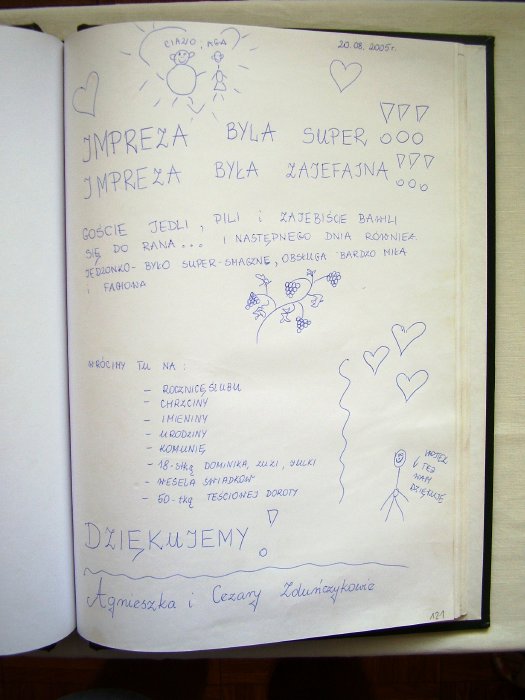 CIAPO, AGA
20.08.2005r.
IMPREZA BYŁA SUPER !!!
IMPREZA BYŁA ZAJEFAJNA !!!
GOŚCIE JEDLI, PILI i ZAJEBIŚCIE BAWILI
SIĘ DO RANA... I NASTĘPNEGO DNIA RÓWNIEŻ.
JEDZONKO - BYŁO SUPER-SMACZNE, OBSŁUGA BARDZO MIŁA
i FACHOWA
WRÓCIMY TU NA:
- ROCZNICĘ ŚLUBU
- CHRZCINY
- IMIENINY
- URODZINY
- KOMUNIĘ
- 18-stkę DOMINIKA, ZUZI, JULKI
- WESELA ŚWIADKÓW
- 50-tkę TEŚCIOWEJ DOROTY
HOTEL
TEŻ
WAM
DZIĘKUJĘ
DZIĘKUJEMY !
Agnieszka i Cezary Zduńczykowie
121